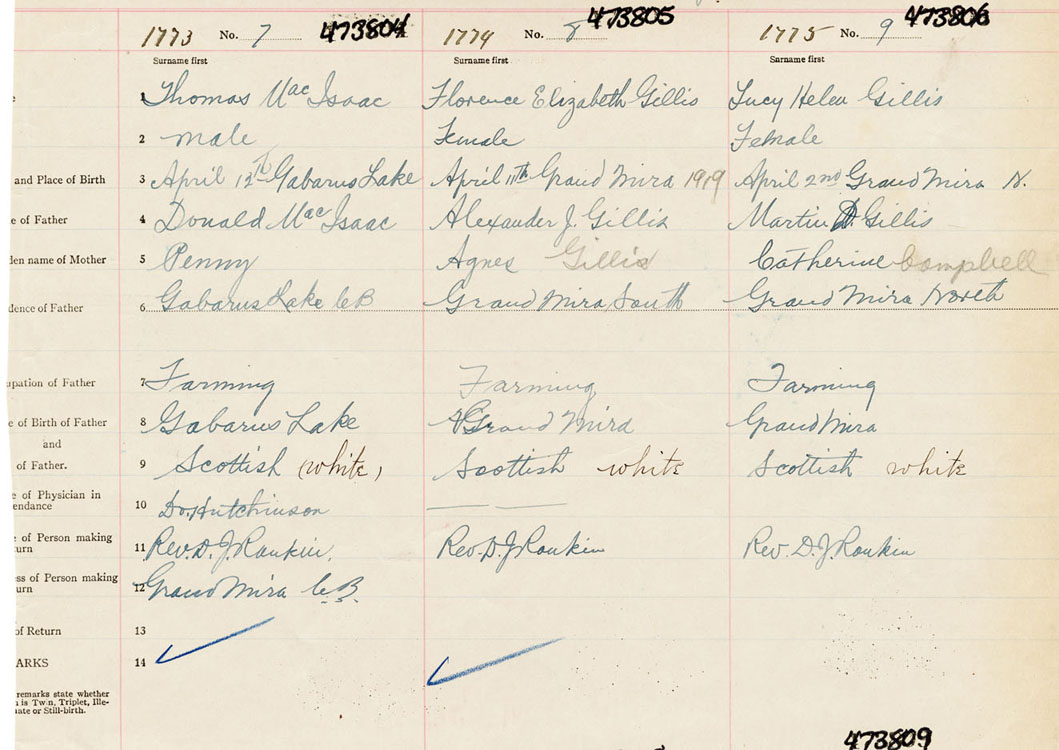 1773 No. 7 473804 1774 No. 8 473805 1775 No. 9 473806
Surname first Surname first Surname first
1 Thomas MacIsaac Florence Elizabeth Gillis Lucy Helen Gillis
2 male Female Female
and Place of Birth 3 April 12th Gabarus Lake April 11th Grand Mira 1919 April 2nd Grand Mira N.
e of Father 4 Donald MacIsaac Alexander J. Gillis Martin D. Gillis
den name of Mother 5 Penny Agnes Gillis Catherine Campbell
dence of Father 6 Gabarus Lake C.B Grand Mira South Grand Mira North
upation of Father 7 Farming Farming Farming
e of Birth of Father 8 Gabarus Lake Grand Mira Grand Mira
and
of Father. 9 Scottish (white) Scottish white Scottish white
e of Physician in
endance 10 Dr. Hutchinson
e of Person making
turn 11 Rev. D. J. Rankin. Rev. D. J Rankin Rev. D. J. Rankin
ess of Person making
urn 12 Grand Mira C.B.
of Return 13
ARKS 14
remarks state whether
is Twin, Triplet, Ille-
ate or Still-birth.
473809